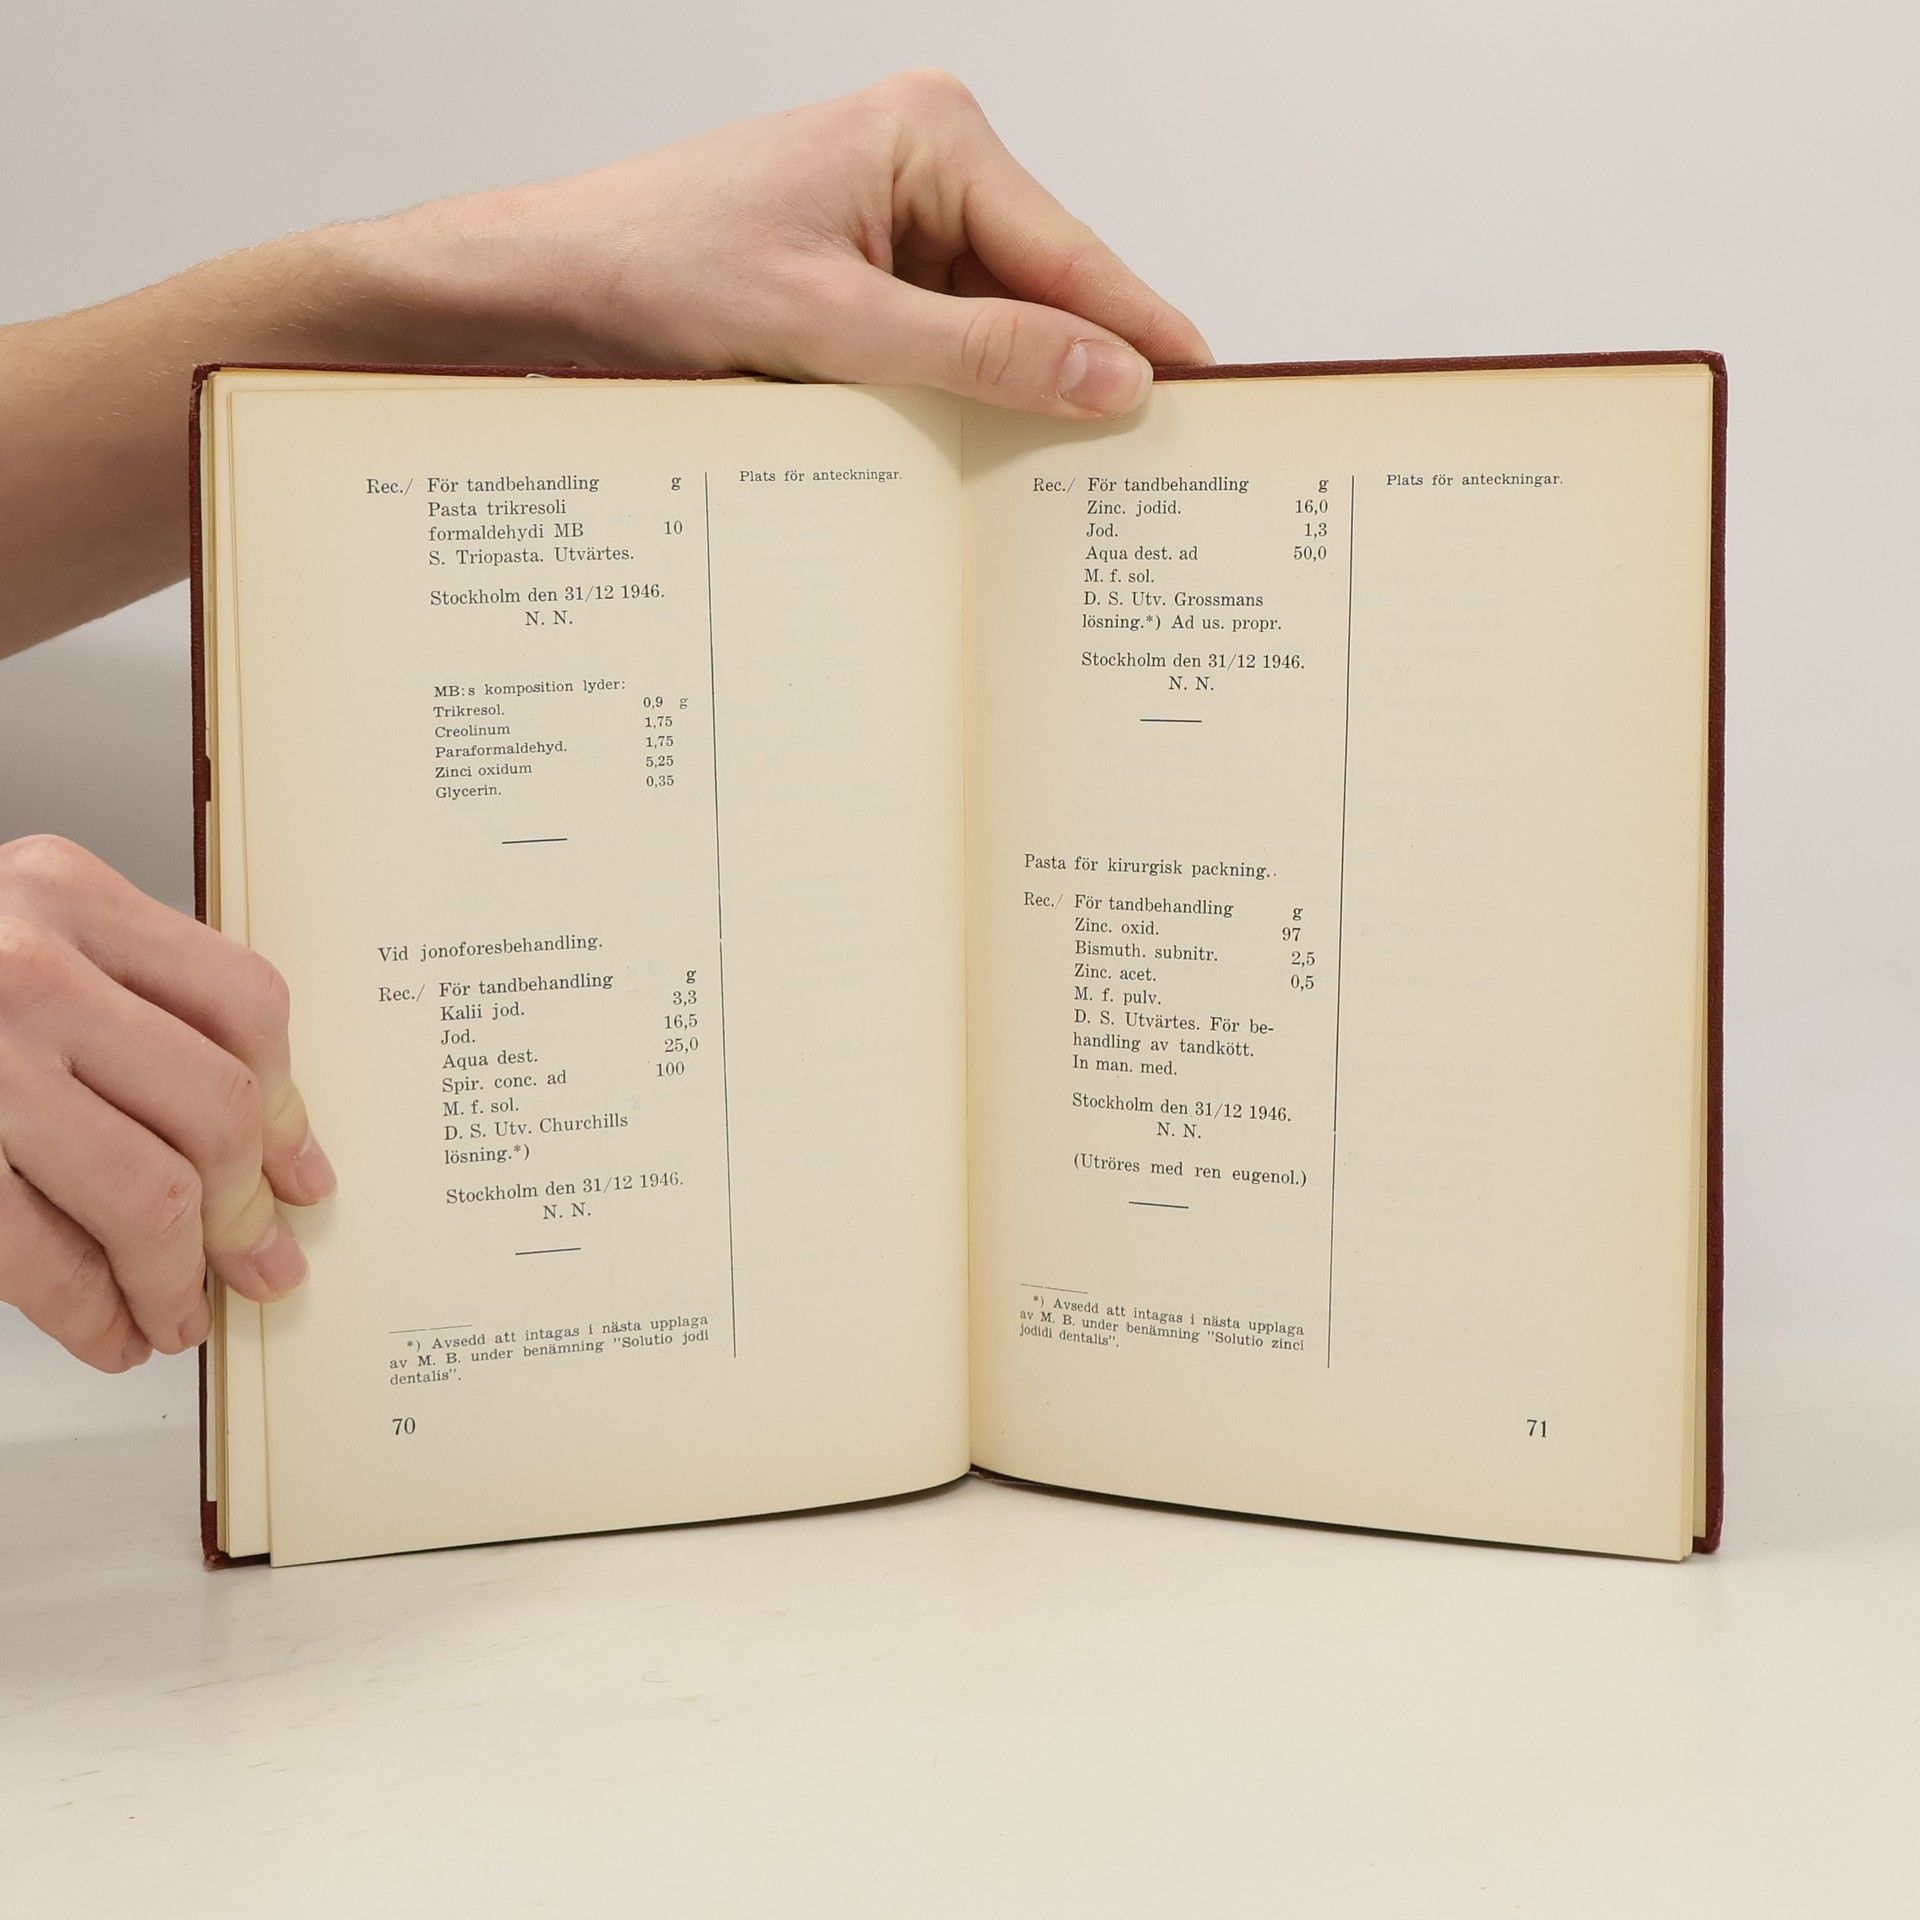 Rec./ För tandbehandling g
Pasta trikresoli
formaldehydi MB 10
S. Triopasta. Utvärtes.
Stockholm den 31/12 1946.
N. N.
MB:s komposition lyder:
Trikresol. 0,9 g
Creolinum 1,75
Paraformaldehyd. 1,75
Zinci oxidum 5,25
Glycerin. 0,35
Vid jonoforesbehandling.
Rec./ För tandbehandling g
Kalii jod. 3,3
Jod. 16,5
Aqua dest. 25,0
Spir. conc. ad 100
M. f. sol.
D. S. Utv. Churchills
lösning.*)
Stockholm den 31/12 1946.
N. N.
*) Avsedd att intagas i nästa upplaga
av M. B. under benämning "Solutio jodi
dentalis".
70
Plats för anteckningar.
Rec./ För tandbehandling g
Zinc. jodid. 16,0
Jod. 1,3
Aqua dest. ad 50,0
M. f. sol.
D. S. Utv. Grossmans
lösning.*) Ad us. propr.
Stockholm den 31/12 1946.
N. N.
Pasta för kirurgisk packning..
Rec./ För tandbehandling g
Zinc. oxid. 97
Bismuth. subnitr. 2,5
Zinc. acet. 0,5
M. f. pulv.
D. S. Utvärtes. För be-
handling av tandkött.
In man. med.
Stockholm den 31/12 1946.
N. N.
(Utröres med ren eugenol.)
*) Avsedd att intagas i nästa upplaga
av M. B. under benämning "Solutio zinci
jodidi dentalis".
Plats för anteckningar.
71